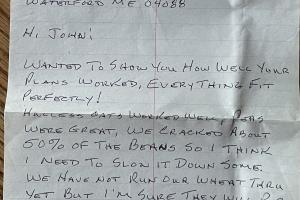 WATERFORD ME 04088
HI JOHN!
WANTED TO SHOW YOU HOW WELL YOUR
PLANS WORKED, EVERYTHING FIT
PERFECTLY!
HULLESS OATS WORKED WELL, PEAS
WERE GREAT, WE CRACKED ABOUT
50% OF THE BEANS SO I THINK
I NEED TO SLOW IT DOWN SOME.
WE HAVE NOT RUN OUR WHEAT THRU
YET BUT I'M SURE THEY WILL BE